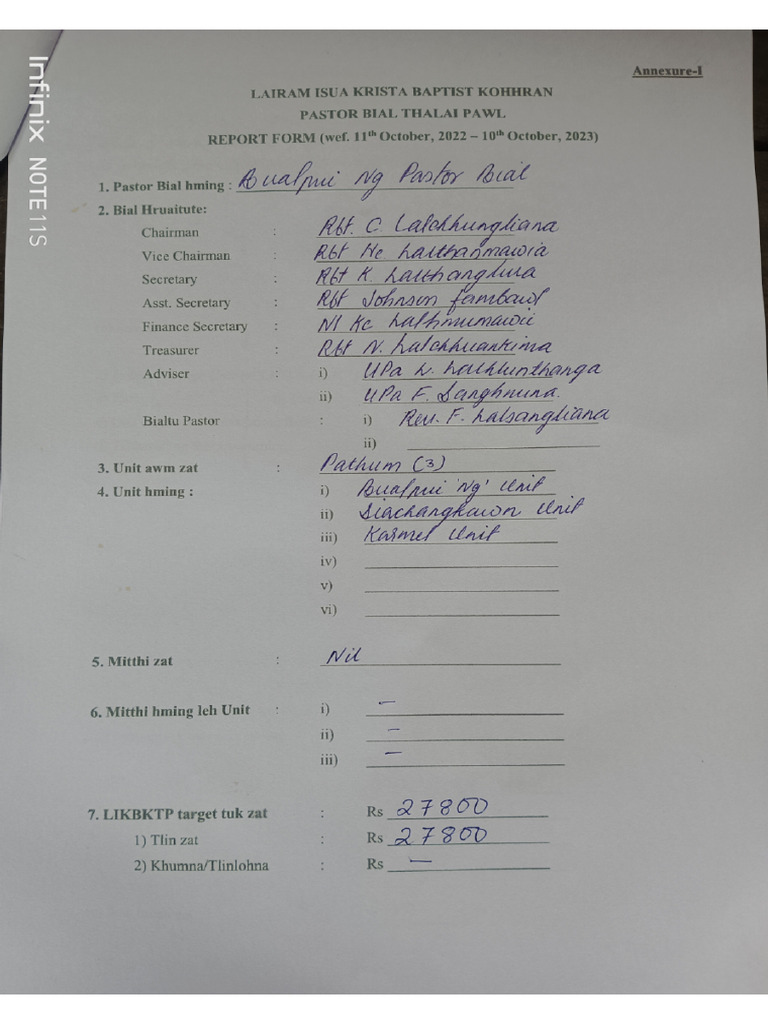 Annexure-I
LAIRAM ISUA KRISTA BAPTIST KOHHRAN
PASTOR BIAL THALAI PAWL
REPORT FORM (wef. 11th October, 2022 – 10th October, 2023)
1. Pastor Bial hming : Bualpui Ng Pastor Bial
2. Bial Hruaitute:
Chairman : Rbt. C. Lalchhungliana
Vice Chairman : Rbt Hc. Lalthanmawia
Secretary : Rbt K. Lalthanglura
Asst. Secretary : Rbt Johnson Fambawl
Finance Secretary : Nl Kc Lalhmumawii
Treasurer : Rbt N. Lalchhuankima
Adviser : i) UPa L. Lalchhunthanga
ii) UPa F. Sanghnuna.
Bialtu Pastor : i) Rev. F. Lalsangliana
ii)
3. Unit awm zat : Pathum (3)
4. Unit hming : i) Bualpui 'Ng' Unit
ii) Siachangkawn Unit
iii) Karmel Unit
iv)
v)
vi)
5. Mitthi zat : Nil
6. Mitthi hming leh Unit : i) –
ii) –
iii) –
7. LIKBKTP target tuk zat : Rs 27800
1) Tlin zat : Rs 27800
2) Khumna/Tlinlohna : Rs –
Infinix NOTE 11S